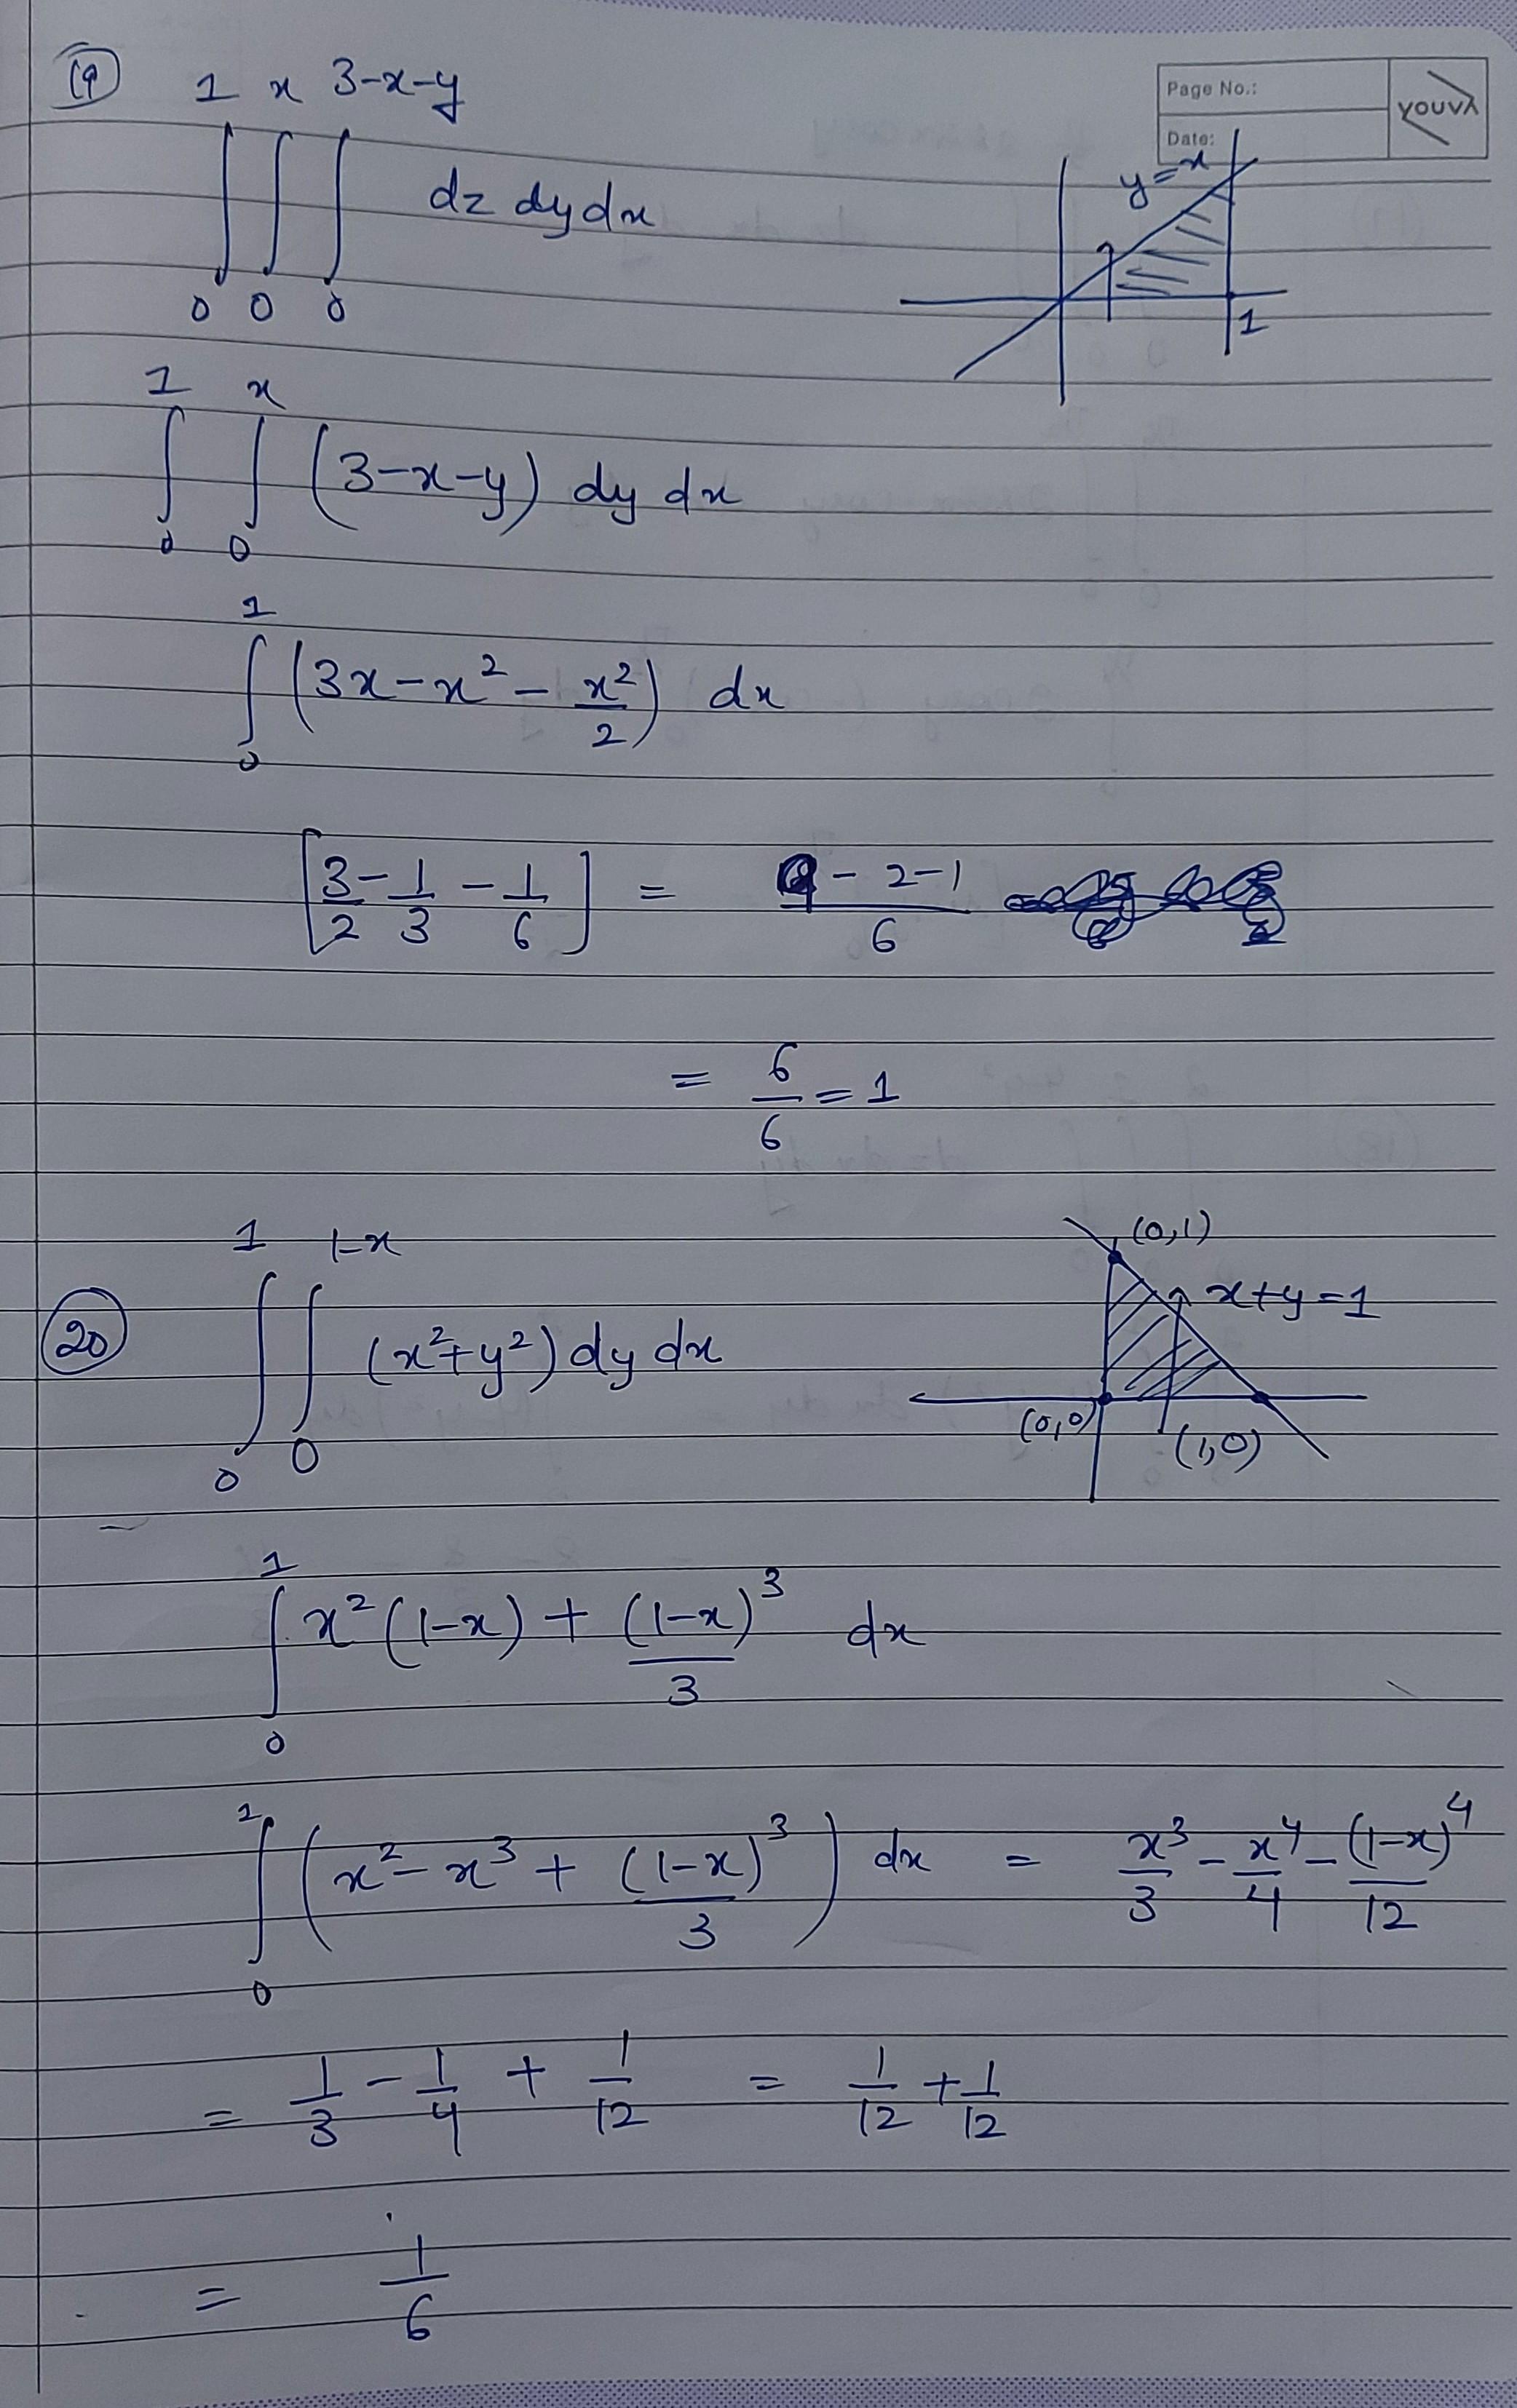 19
Page No.:
Date:
YOUVA
∫₀¹ ∫₀ˣ ∫₀^(3-x-y) dz dy dx
y=x
1
∫₀¹ ∫₀ˣ (3-x-y) dy dx
∫₀¹ (3x - x² - x²/2) dx
[3/2 - 1/3 - 1/6] = (9 - 2 - 1)/6
= 6/6 = 1
20
∫₀¹ ∫₀^(1-x) (x²+y²) dy dx
(0,1)
x+y=1
(0,0)
(1,0)
∫₀¹ x²(1-x) + (1-x)³/3 dx
∫₀¹ (x² - x³ + (1-x)³/3) dx = x³/3 - x⁴/4 - (1-x)⁴/12
= 1/3 - 1/4 + 1/12 = 1/12 + 1/12
= 1/6